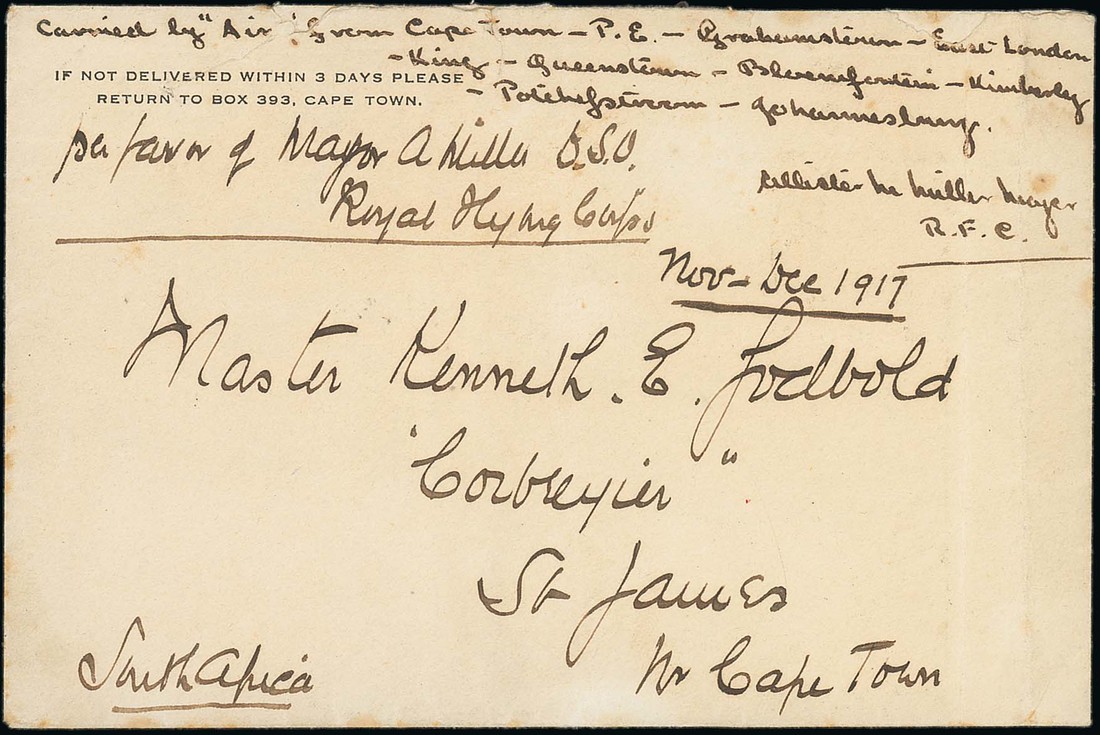 Carried by "Air" from Cape Town - P.E. - Grahamstown - East London
- King - Queenstown - Bloemfontein - Kimberley
- Potchefstroom - Johannesburg.
IF NOT DELIVERED WITHIN 3 DAYS PLEASE
RETURN TO BOX 393, CAPE TOWN.
per favor of Major A Miller D.S.O.
Royal Flying Corps
Allister M Miller Major
R.F.C.
Nov - Dec 1917
Master Kenneth. E. Godbold
"Corbeyrier"
St James
Nr Cape Town
South Africa